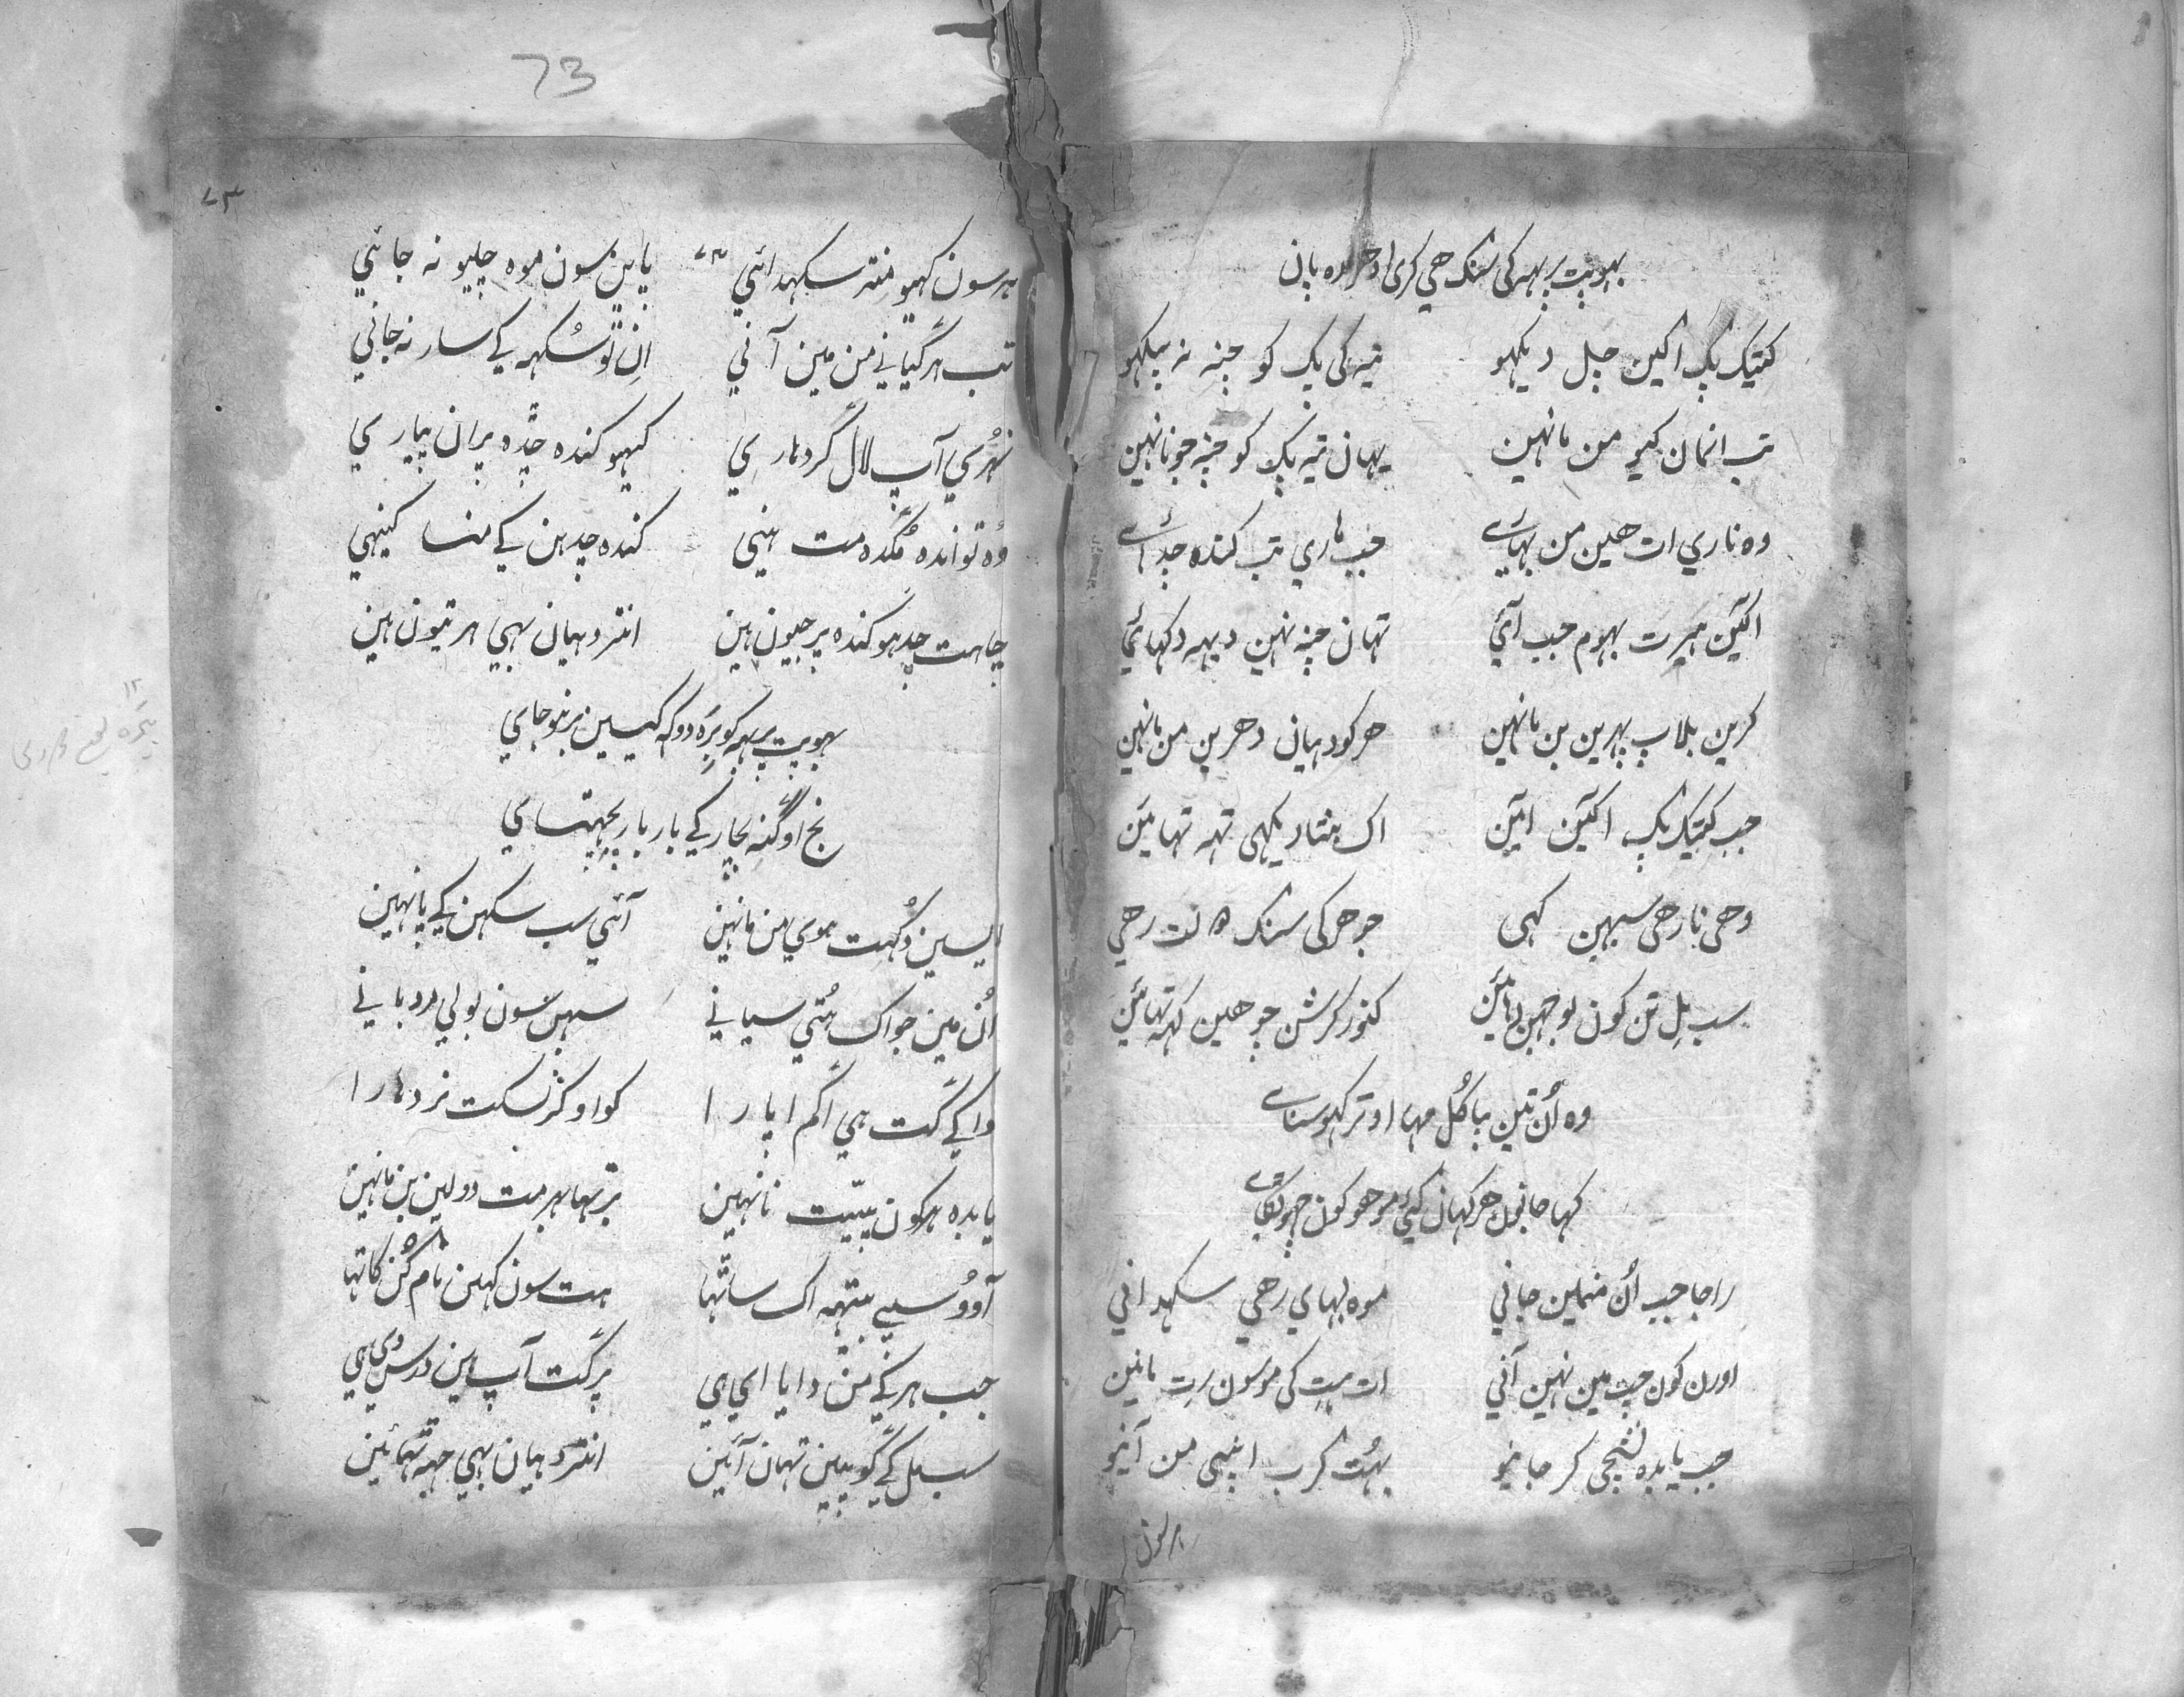 بهوپت پریهه کی سنک هی کری ادهر مده پان
کتیک پک اکین چل دیکهو تیه کی پک کو چنه نه پیکهو
تب انمان کیو من مانهین یهان تیه پک کو چنه جو نانهین
وه ناری ات هین من بهائے جب هاری تب کنده چڈائے
اکین هیرت بهوم جب آئی تهان چنه نهین دیهه دکهائی
کرین بلاپ پهرین بن مانهین هر کو دهیان دهرین من مانهین
جب کتیک پک اکین ائین اک بنتا دیکهی تهه تهائین
وهی نار هی سبهین کهی جو هر کی سنک هت رهی
سب مل تن کون بوجهین کنور کرشن جو هین کهه تهائین
وه ان تین بیاکل مها اوتر کهو سنائے
کها جانون هر کهان کئے موهو کون
راجا جب ان منمین جانی موه لبهای رهی سکهدانی
اورن کون چت مین نهین آنی ات هت کی موسون رت مانین
جب یا بده نشچی کر جانیو بهت کرب اپنی من آنیو
هر سون
73
۷۳
هر سون کهیو منتر سکهدائی یا بن سون موه چلیو نه جائی
تب هر گیانے من مین آنی ان تو سکهه کے سار نه جانی
نهری آپ لال گردهاری کهیو کنده چڈه پران پیاری
وه تو انده مگده مت هینی کنده چڈهن کے منسا کینهی
چاهت چڈهو کنده پر جیون هین انتر دهیان بهی هر تیون هین
بهوپت پریهه کو بره دوکهه کیسین برنو جای
نج اوگنه بچار کے بار بار پچهتای
ایسین دکهت هوی من مانهین آئی سب سکهین کے پانهین
ان مین جو اک هتی سیانے سبهن سون بولی مرد بانے
وا کے گت هی اگم اپارا کوا و کر نسکت نردهارا
یا بده هر کون پییت نانهین برتها هر مت دولین بن مانهین
آوو سبے بیتهه اک ساتها هت سون کهین نام گن گاتها
جب هر کے من دایا ایهی پرگت آپ این درس دیهی
سب مل کے گوپین تهان آئین انتر دهیان بهی جهه تهائین